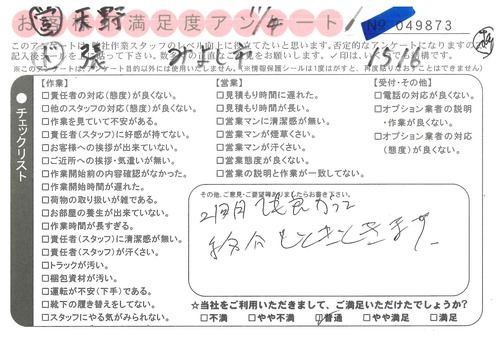 お客様満足度アンケート
No 049873
営 天野 11/4
1516
このアンケートは当社作業スタッフのレベル向上に役立てたいと思います。否定的なアンケートになりますが、
チェックリスト
【作業】
□責任者の対応(態度)が良くない。
□他のスタッフの対応(態度)が良くない。
□作業を見ていて不安がある。
□責任者(スタッフ)に好感が持てない。
□お客様への挨拶が出来ていない。
□ご近所への挨拶・気遣いが無い。
□作業開始前の内容確認がなかった。
□作業開始時間が遅れた。
□荷物の取り扱いが雑である。
□お部屋の養生が出来ていない。
□作業時間が長すぎる。
□責任者(スタッフ)に清潔感が無い。
□責任者(スタッフ)が汗くさい。
□トラックが汚い。
□梱包資材が汚い。
□運転が不安(下手)である。
□靴下の履き替えをしてない。
□スタッフにやる気がみられない。
【営業】
□見積もり時間に遅れた。
□見積もり時間が長い。
□営業マンに清潔感が無い。
□営業マンが煙草くさい。
□営業マンが汗くさい。
□営業態度が良くない。
□営業の説明と作業が一致してない。
【受付・その他】
□電話の対応が良くない。
□オプション業者の説明
・作業が良くない。
□オプション業者の対応
(態度)が良くない。
その他、ご意見・ご要望等ありましたらお書き下さい。
2回目
☆当社をご利用いただきまして、ご満足いただけたでしょうか？
□不満 □やや不満 □普通 □やや満足 □満足